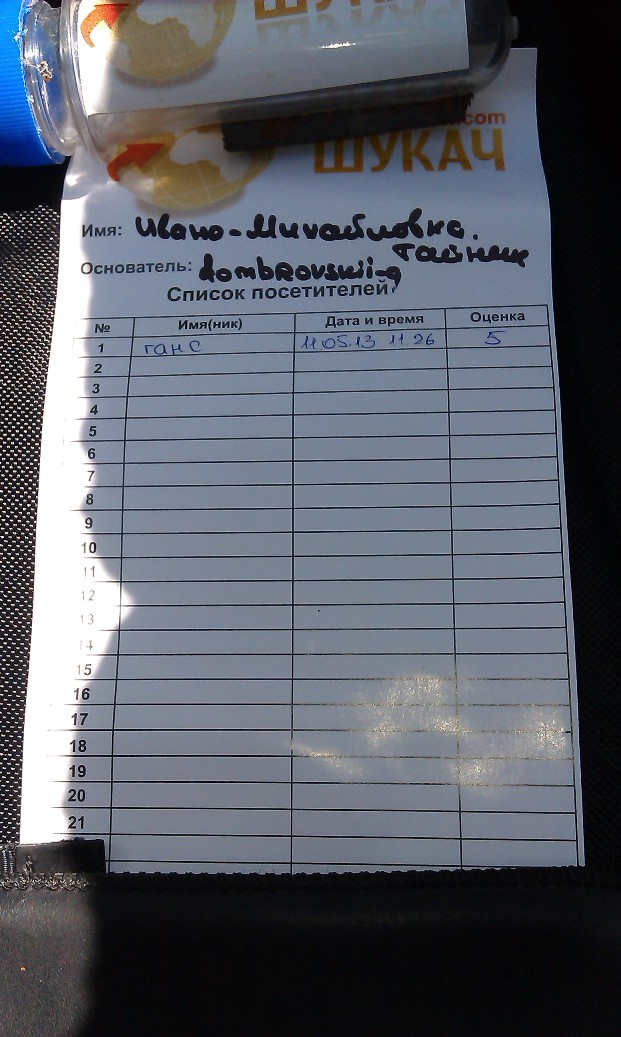 ШУКАЧ
.com
ШУКАЧ
Имя: Ивано-Михайловка.
тайник
Основатель: dombrovskii-g
Список посетителей
№ Имя(ник) Дата и время Оценка
1 ганс 11.05.13 11.26 5
2
3
4
5
6
7
8
9
10
11
12
13
14
15
16
17
18
19
20
21